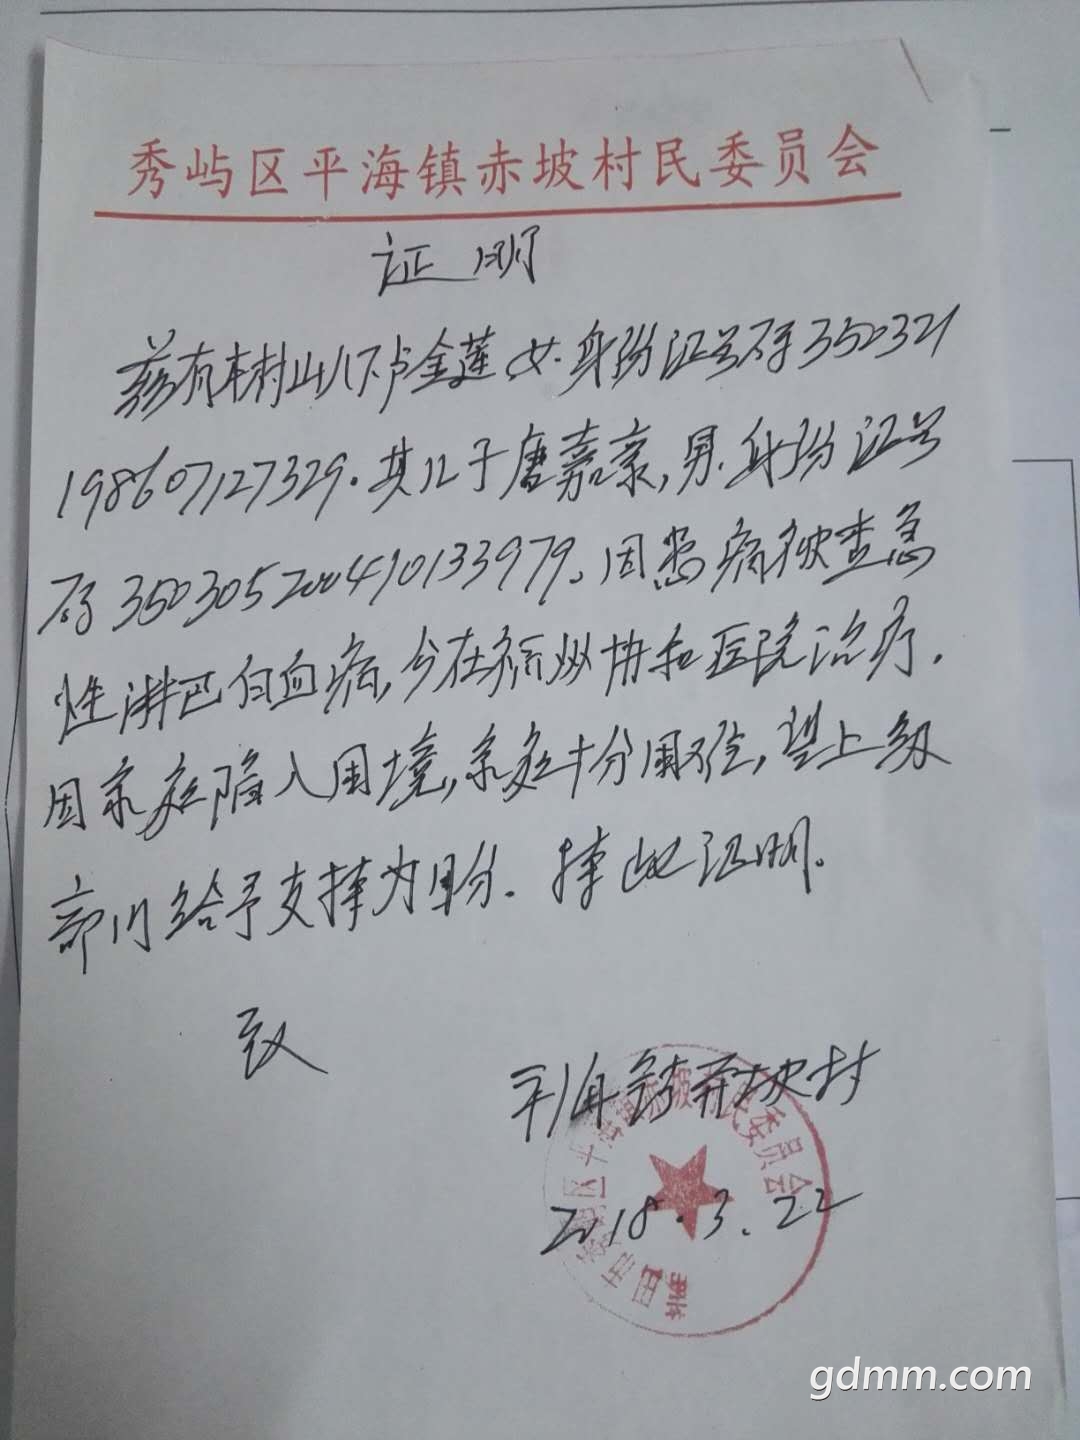 秀屿区平海镇赤坡村民委员会
证明
兹有本村山下卢金莲,女.身份证号码350321
198607127329.其儿子唐嘉豪,男.身份证号
码350305200410133979.因患病被查急
性淋巴白血病,今在福州协和医院治疗.
因家庭陷入困境,家庭十分困难,望上级
部门给予支持为盼.持此证明.
致
平海镇赤坡村
莆田市秀屿区平海镇赤坡村民委员会
2018.3.22
gdmm.com